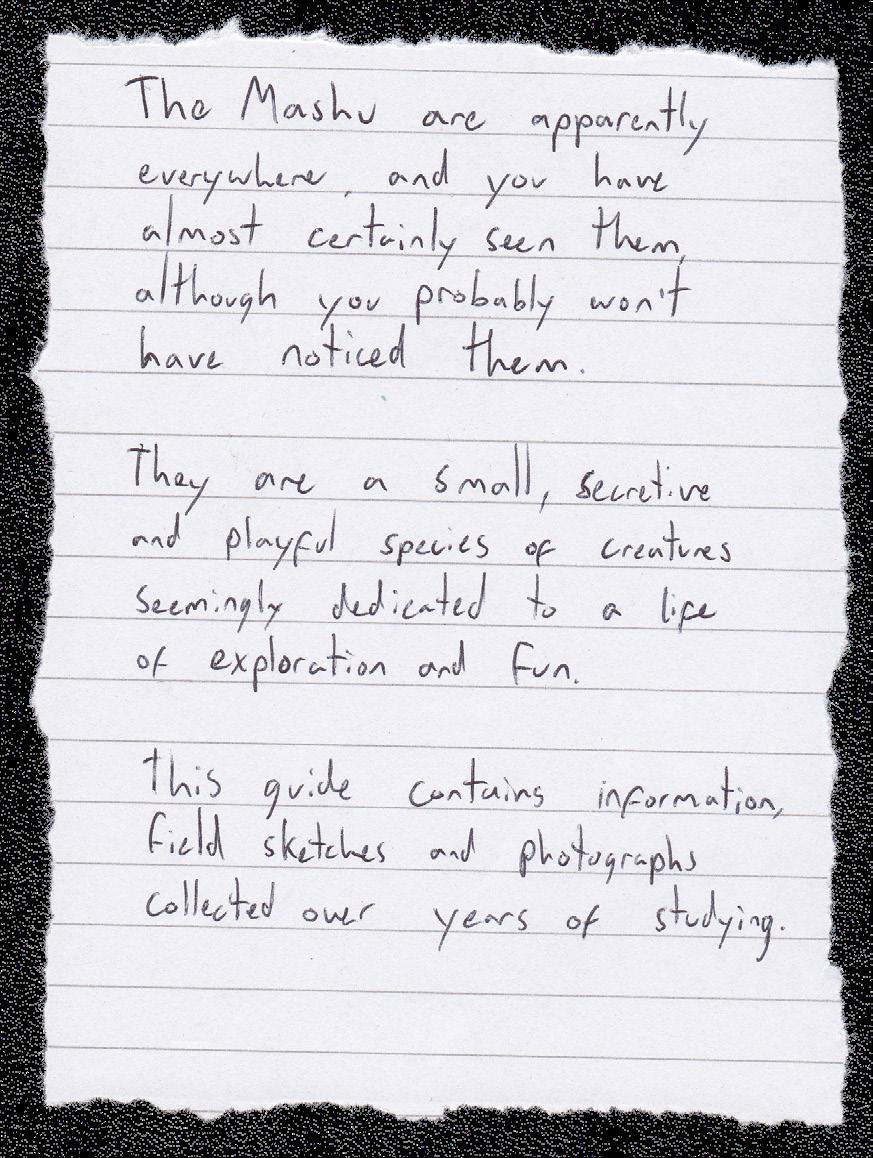 The Mashu are apparently
everywhere, and you have
almost certainly seen them,
although you probably won't
have noticed them.
They are a small, secretive
and playful species of creatures
seemingly dedicated to a life
of exploration and fun.
This guide contains information,
field sketches and photographs
collected over years of studying.